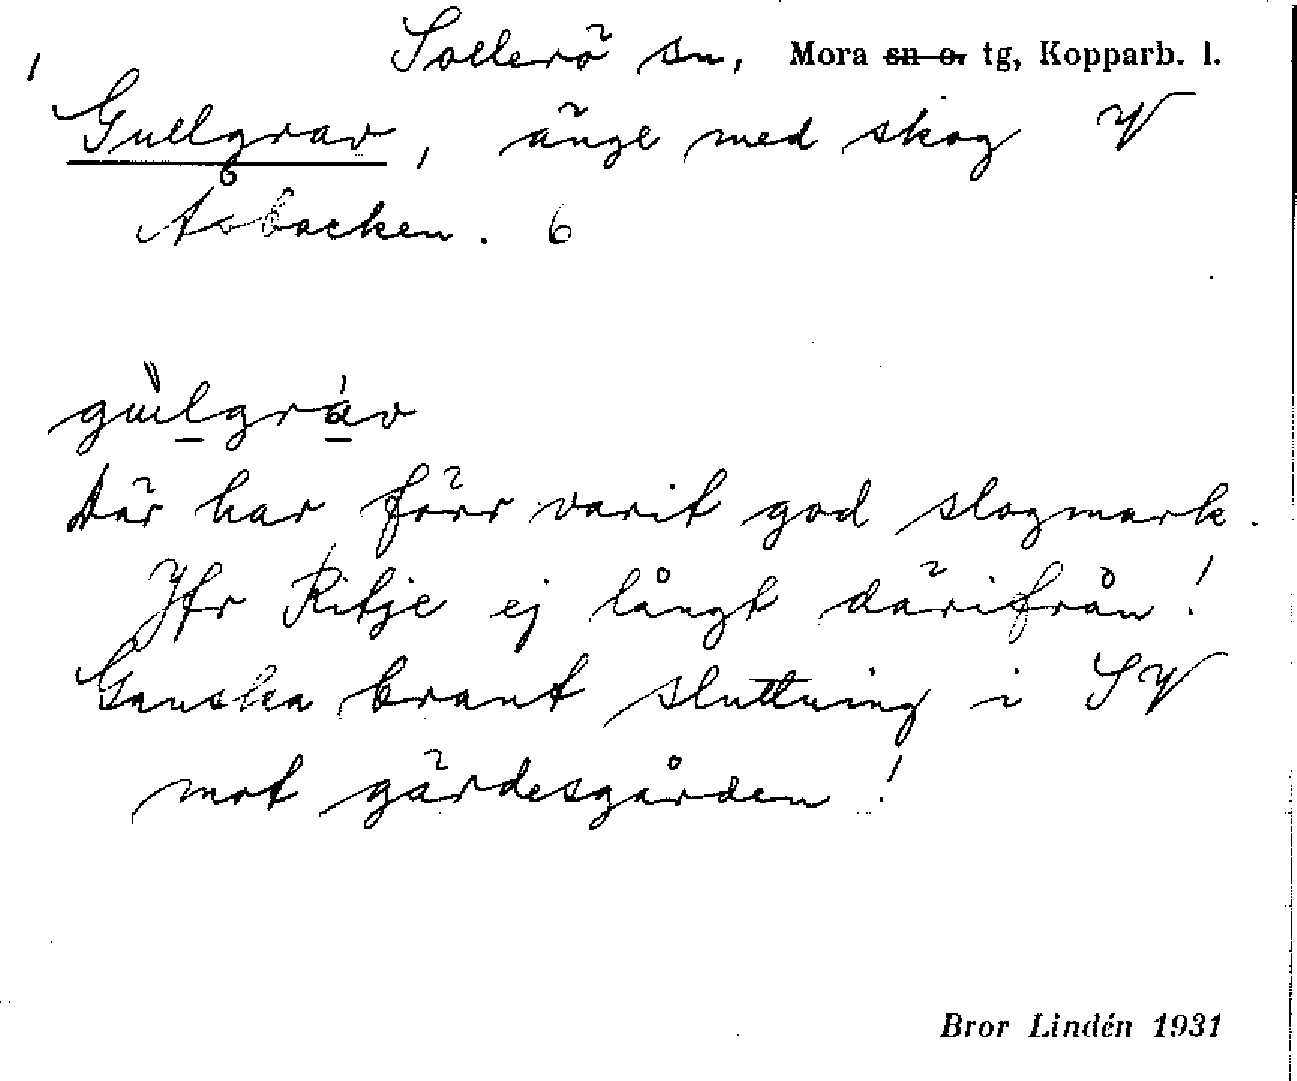 Sollerö sn, Mora sn o. tg, Kopparb. l.
Gullgrav, änge med skog V
Åsbacken. 6
gu̇lgrȧv
Där har förr varit god slogmark.
Jfr Ritje ej långt därifrån!
Ganska brant sluttning i SV
mot gärdesgården!
Bror Lindén 1931